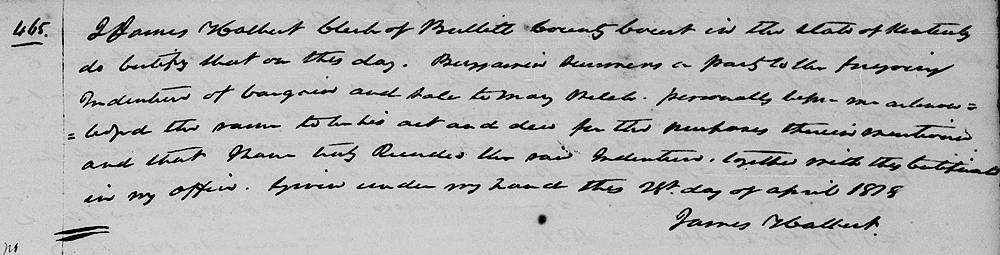 465. I James Halbert Clerk of Bullitt County Court in the State of Kentucky
do certify that on this day. Benjamin Summers a party to the foregoing
Indenture of bargain and Sale to Mary personally before me acknow=
=ledged the same to be his act and deed for the purposes therein mentioned
and that I have truly Recorded the said Indenture. together with this Certificate
in my office. Given under my hand this day of april 1818
James Halbert.